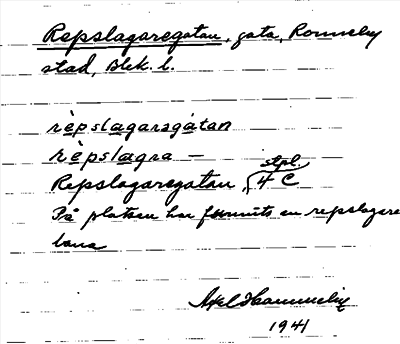 Repslagaregatan, gata, Ronneby
stad, Blek. l.
rèpslagaragàtan
rèpslagra —
stpl.
Repslagaregatan, 4 C
På platsen har funnits en repslagare
bana
Axel Hammelin
1941